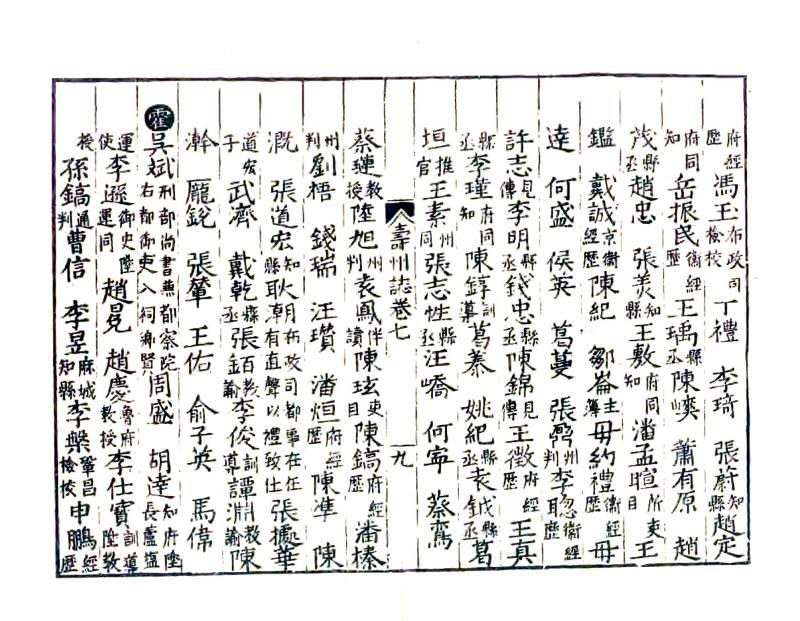 府經歷馮玉布政司檢校丁禮李琦張蔚知縣趙定
府同知岳振民衛經歷王瑀縣丞陳㬇蕭有原趙
茂縣丞趙忠張羙知縣王敷府同知潘孟暄所吏目王
鑑戴誠京衛經歷陳紀鄒崙主簿毋約禮衛經歷毋
逹何盛侯英葛蔓張州判李聰衛經歷
許志見傳李明縣丞錢忠縣丞陳錦見傳王徵府經歷王真
縣丞李瑾府同知陳錞訓導葛蓁姚紀縣丞袁鉞縣丞葛
垣推官王素州同張志性縣丞汪嶠何寧蔡鸞
壽州誌卷七
九
蔡璉教授陸旭州判袁鳳伴讀陳玹吏目陳鎬府經歷潘榛
州判劉梧錢瑞汪瓚潘烜府經歷陳準陳
溉張道宏知縣耿潮布政司都事在任有直聲以禮致仕張據華
道宏子武濟戴乾縣丞張銆教諭李俊訓導譚淵教諭陳
澣龎鋭張犖王佑俞子英馬偉
霍吳斌刑部尚書兼都察院右都御吏入祠鄉賢周盛胡逹知府陞長蘆塩
運使李遜御史陞運同趙晃趙慶魯府教授李仕寳訓導陞教
授孫鎬通判曹信李昱麻城知縣李槃鞏昌檢校申鵬經歷